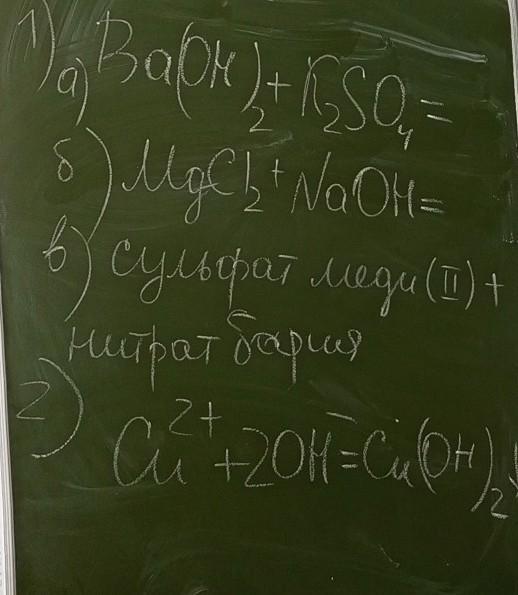 1) а) Ba(OH)₂ + K₂SO₄ =
б) MgCl₂ + NaOH =
в) сульфат меди (II) +
нитрат бария
2) Cu²⁺ + 2OH⁻ = Cu(OH)₂↓